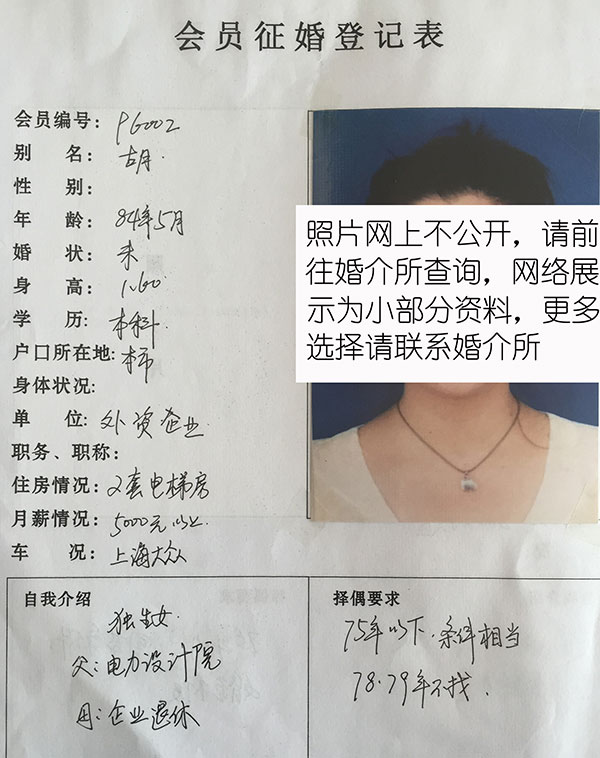 会员征婚登记表
会员编号：PG002
别 名：胡月.
性 别：
年 龄：84年5月
婚 状：未
身 高：1.60
学 历：本科.
户口所在地：本市
身体状况：
单 位：外资企业
职务、职称：
住房情况：2套电梯房
月薪情况：5000元以上.
车 况：上海大众
照片网上不公开，请前
往婚介所查询，网络展
示为小部分资料，更多
选择请联系婚介所
自我介绍
独生女.
父：电力设计院
母：企业退休
择偶要求
75年以下.条件相当
78.79年不找.